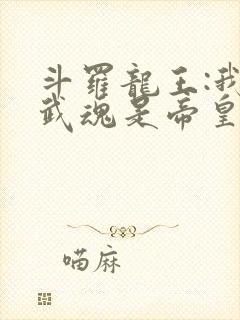 斗羅龍王:我
武魂是帝皇
喵麻